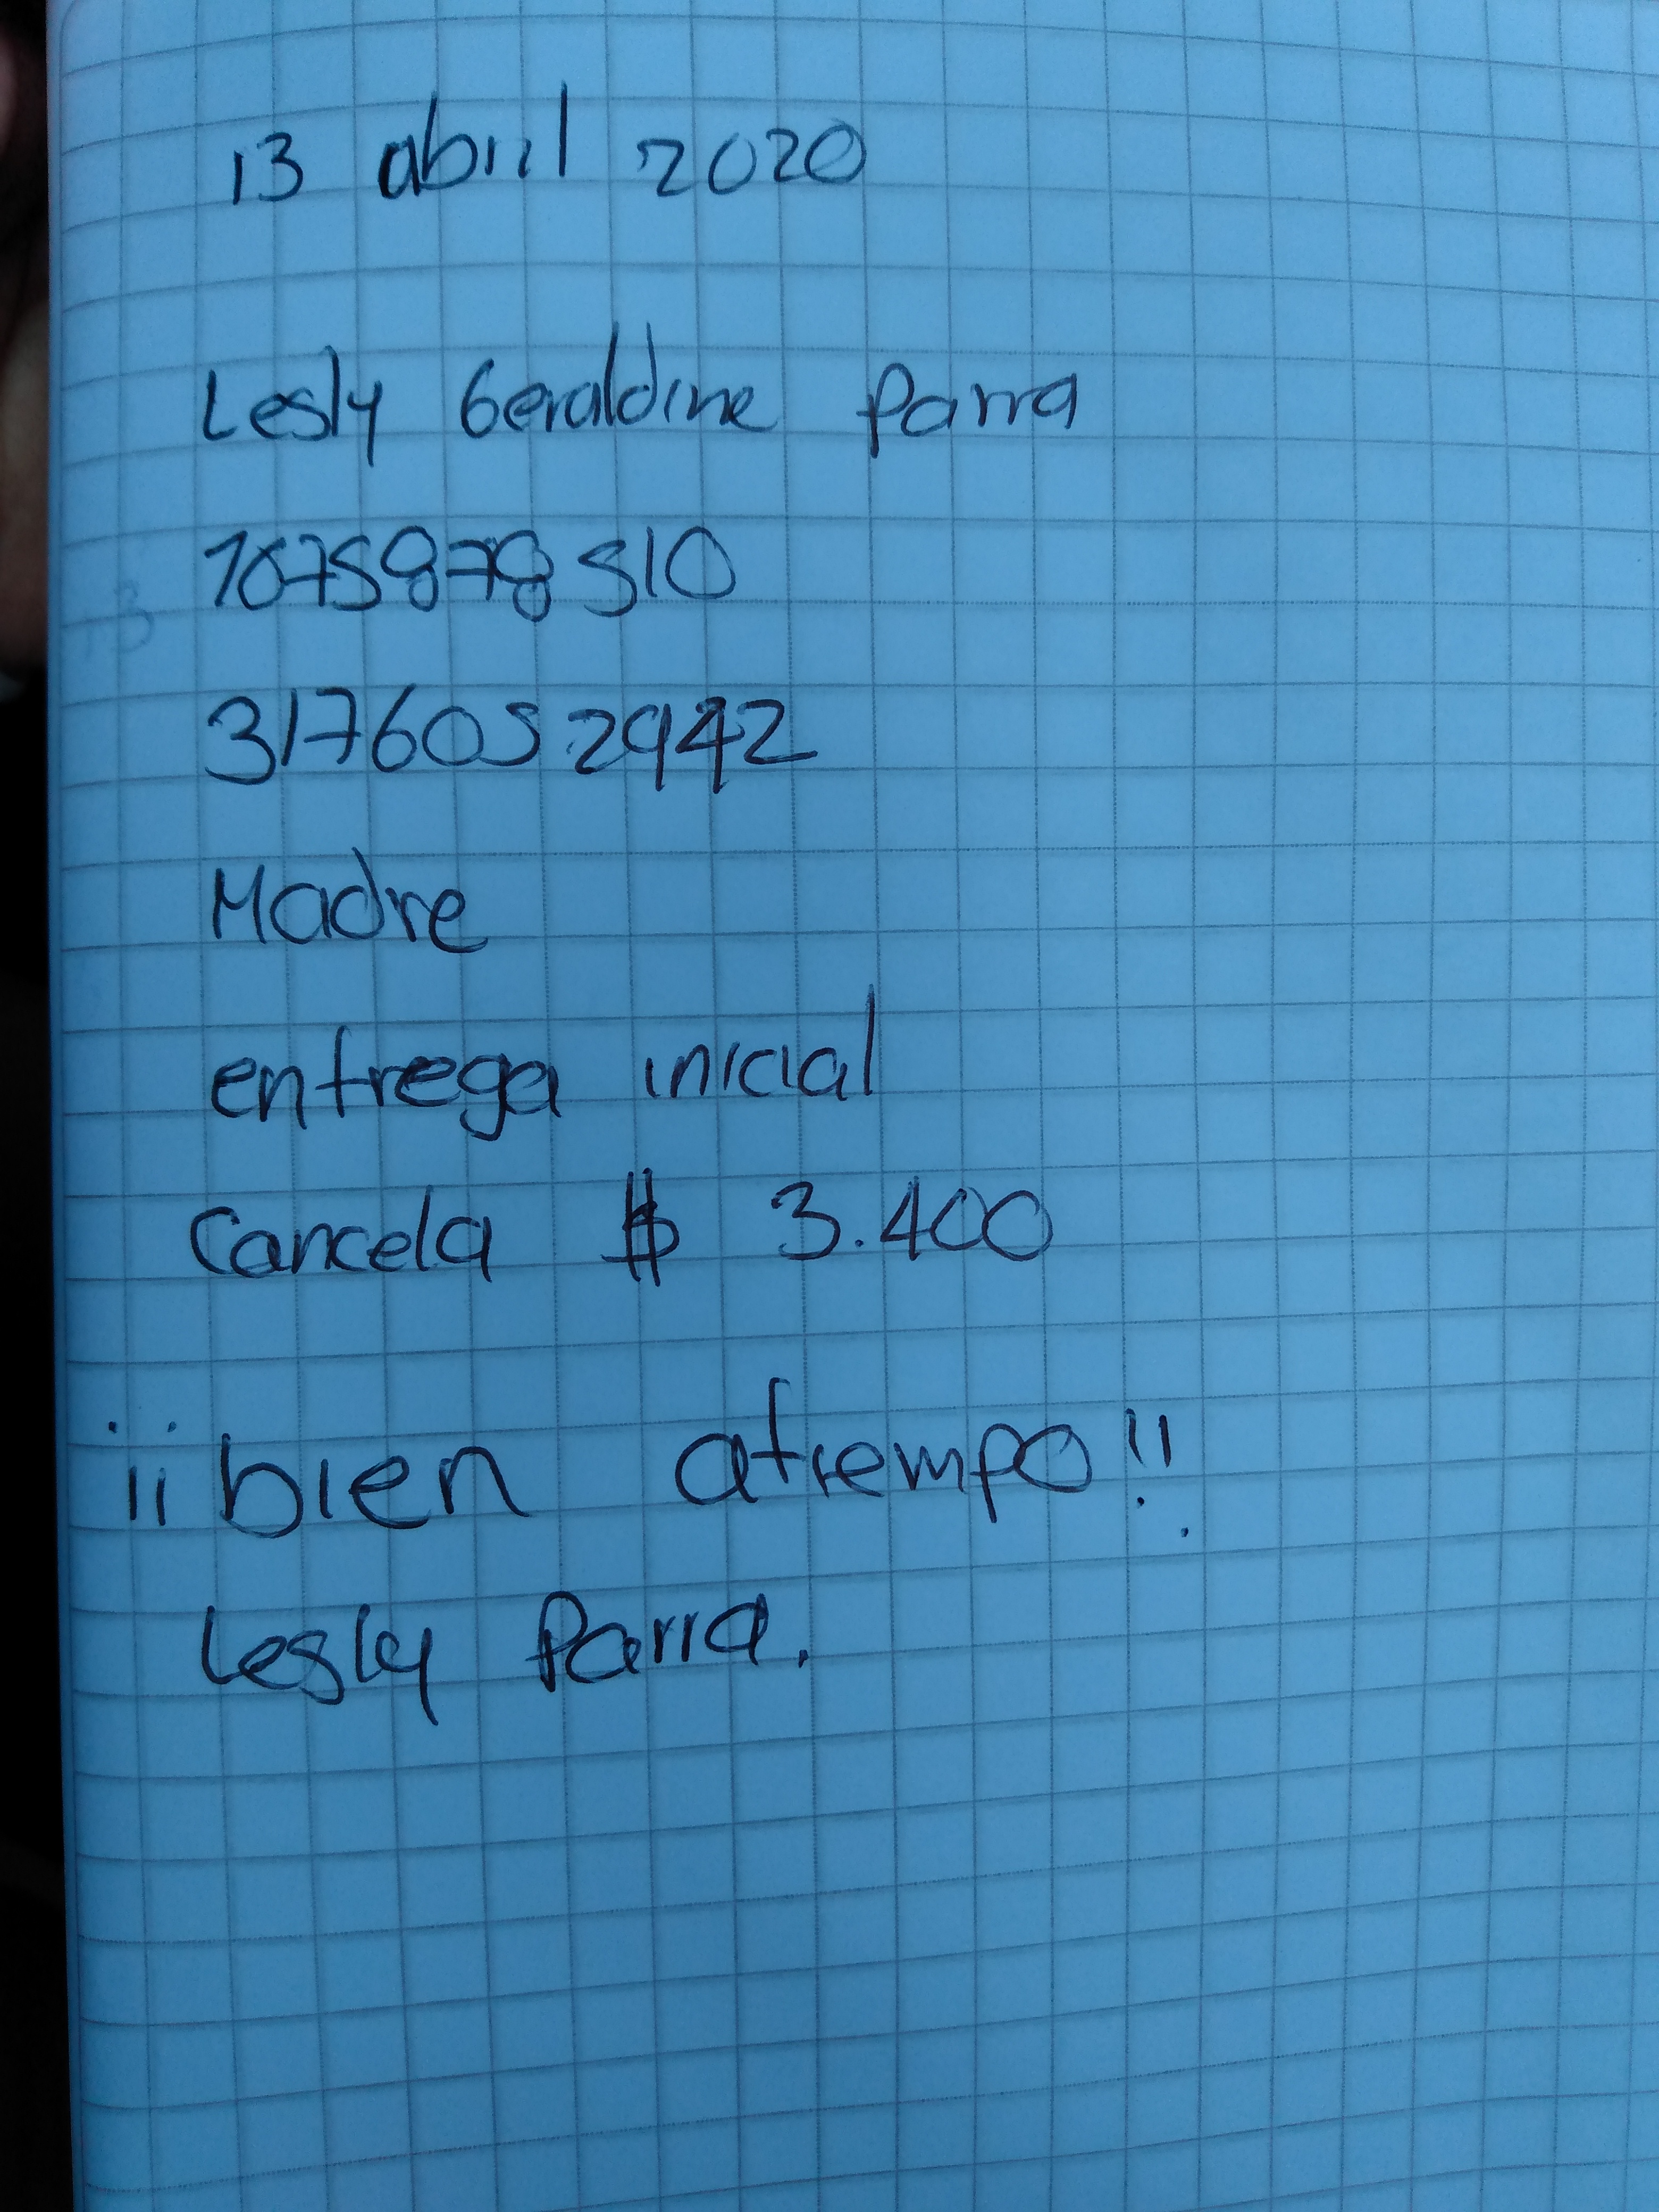 13 abril 2020
Lesly Geraldine Parra
1075878510
3176052942
Madre
entrega inicial
Cancela $ 3.400
¡¡bien atiempo!!
Lesly Parra.